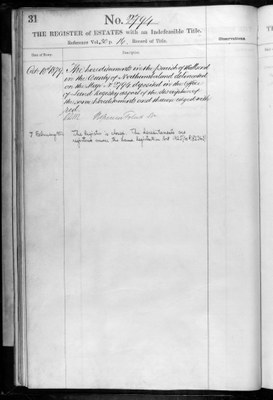 31
No. 2794
THE REGISTER of ESTATES with an Indefeasible Title.
Reference Vol. p. Record of Title.
Date of Entry.
Description.
Observations.
Octr. 10th 1879
The hereditaments in the parish of
in the County of Northumberland delineated
on the Map No 2794 deposited in the office
of Land Registry as part of the description of
the same hereditaments and thereon edged with
red.
7 February
The register is closed. The hereditaments are
registered under the Land Registration Act